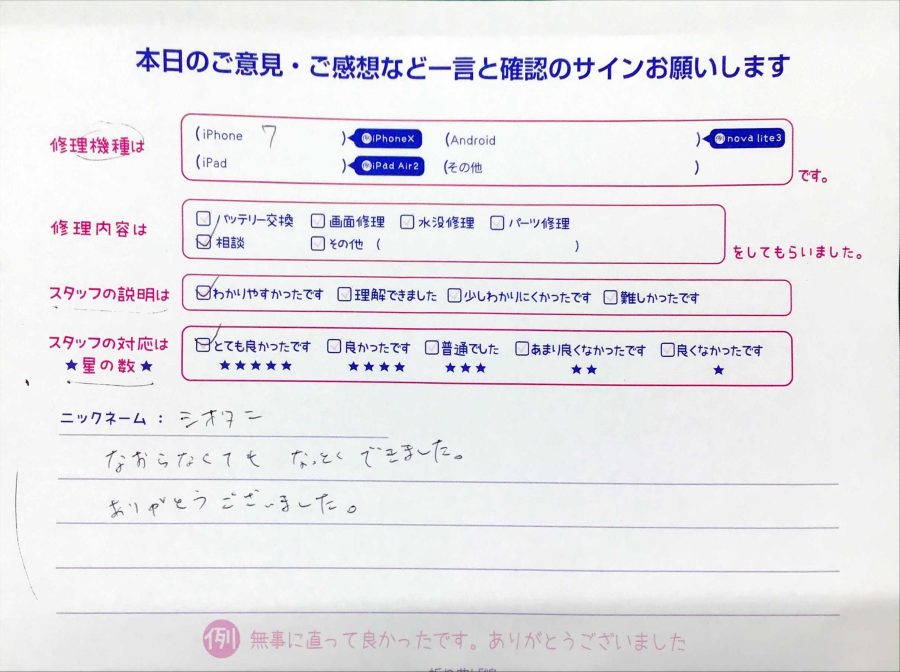 本日のご意見・ご感想など一言と確認のサインお願いします
修理機種は
(iPhone 7 ) 例iPhoneX (Android ) 例nova lite3
(iPad ) 例iPad Air2 (その他 ) です。
修理内容は
バッテリー交換 画面修理 水没修理 パーツ修理
相談 その他 ( ) をしてもらいました。
スタッフの説明は わかりやすかったです 理解できました 少しわかりにくかったです 難しかったです
スタッフの対応は とても良かったです 良かったです 普通でした あまり良くなかったです 良くなかったです
★星の数★ ★★★★★ ★★★★ ★★★ ★★ ★
ニックネーム： シオタニ
なおらなくても なっとくできました。
ありがとうございました。
例 無事に直って良かったです。ありがとうございました